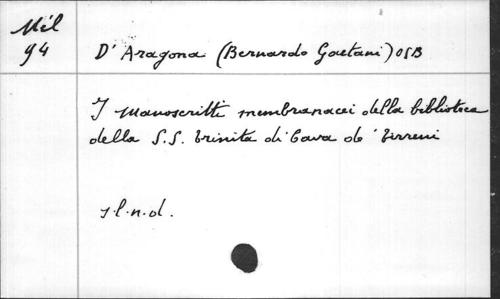 Mél
94
D' Aragona (Bernardo Gaetani) OSB
I Manoscritti membranacei della biblioteca
della S.S. trinita di Cava de' tirreni
s.l.n.d.